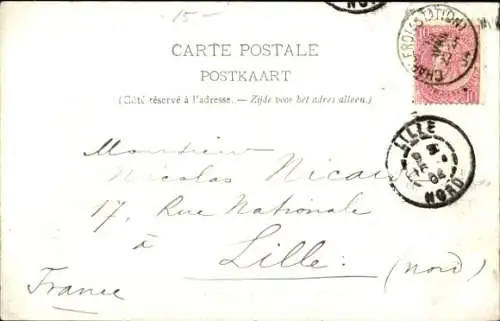 15-
CARTE POSTALE
POSTKAART
(Côté réservé à l'adresse. — Zijde voor het adres alleen.)
CHARLEROI (STATION)
10
LILLE
NORD
Monsieur
Nicolas Nicaise
17, Rue Nationale
à
Lille. (Nord)
France